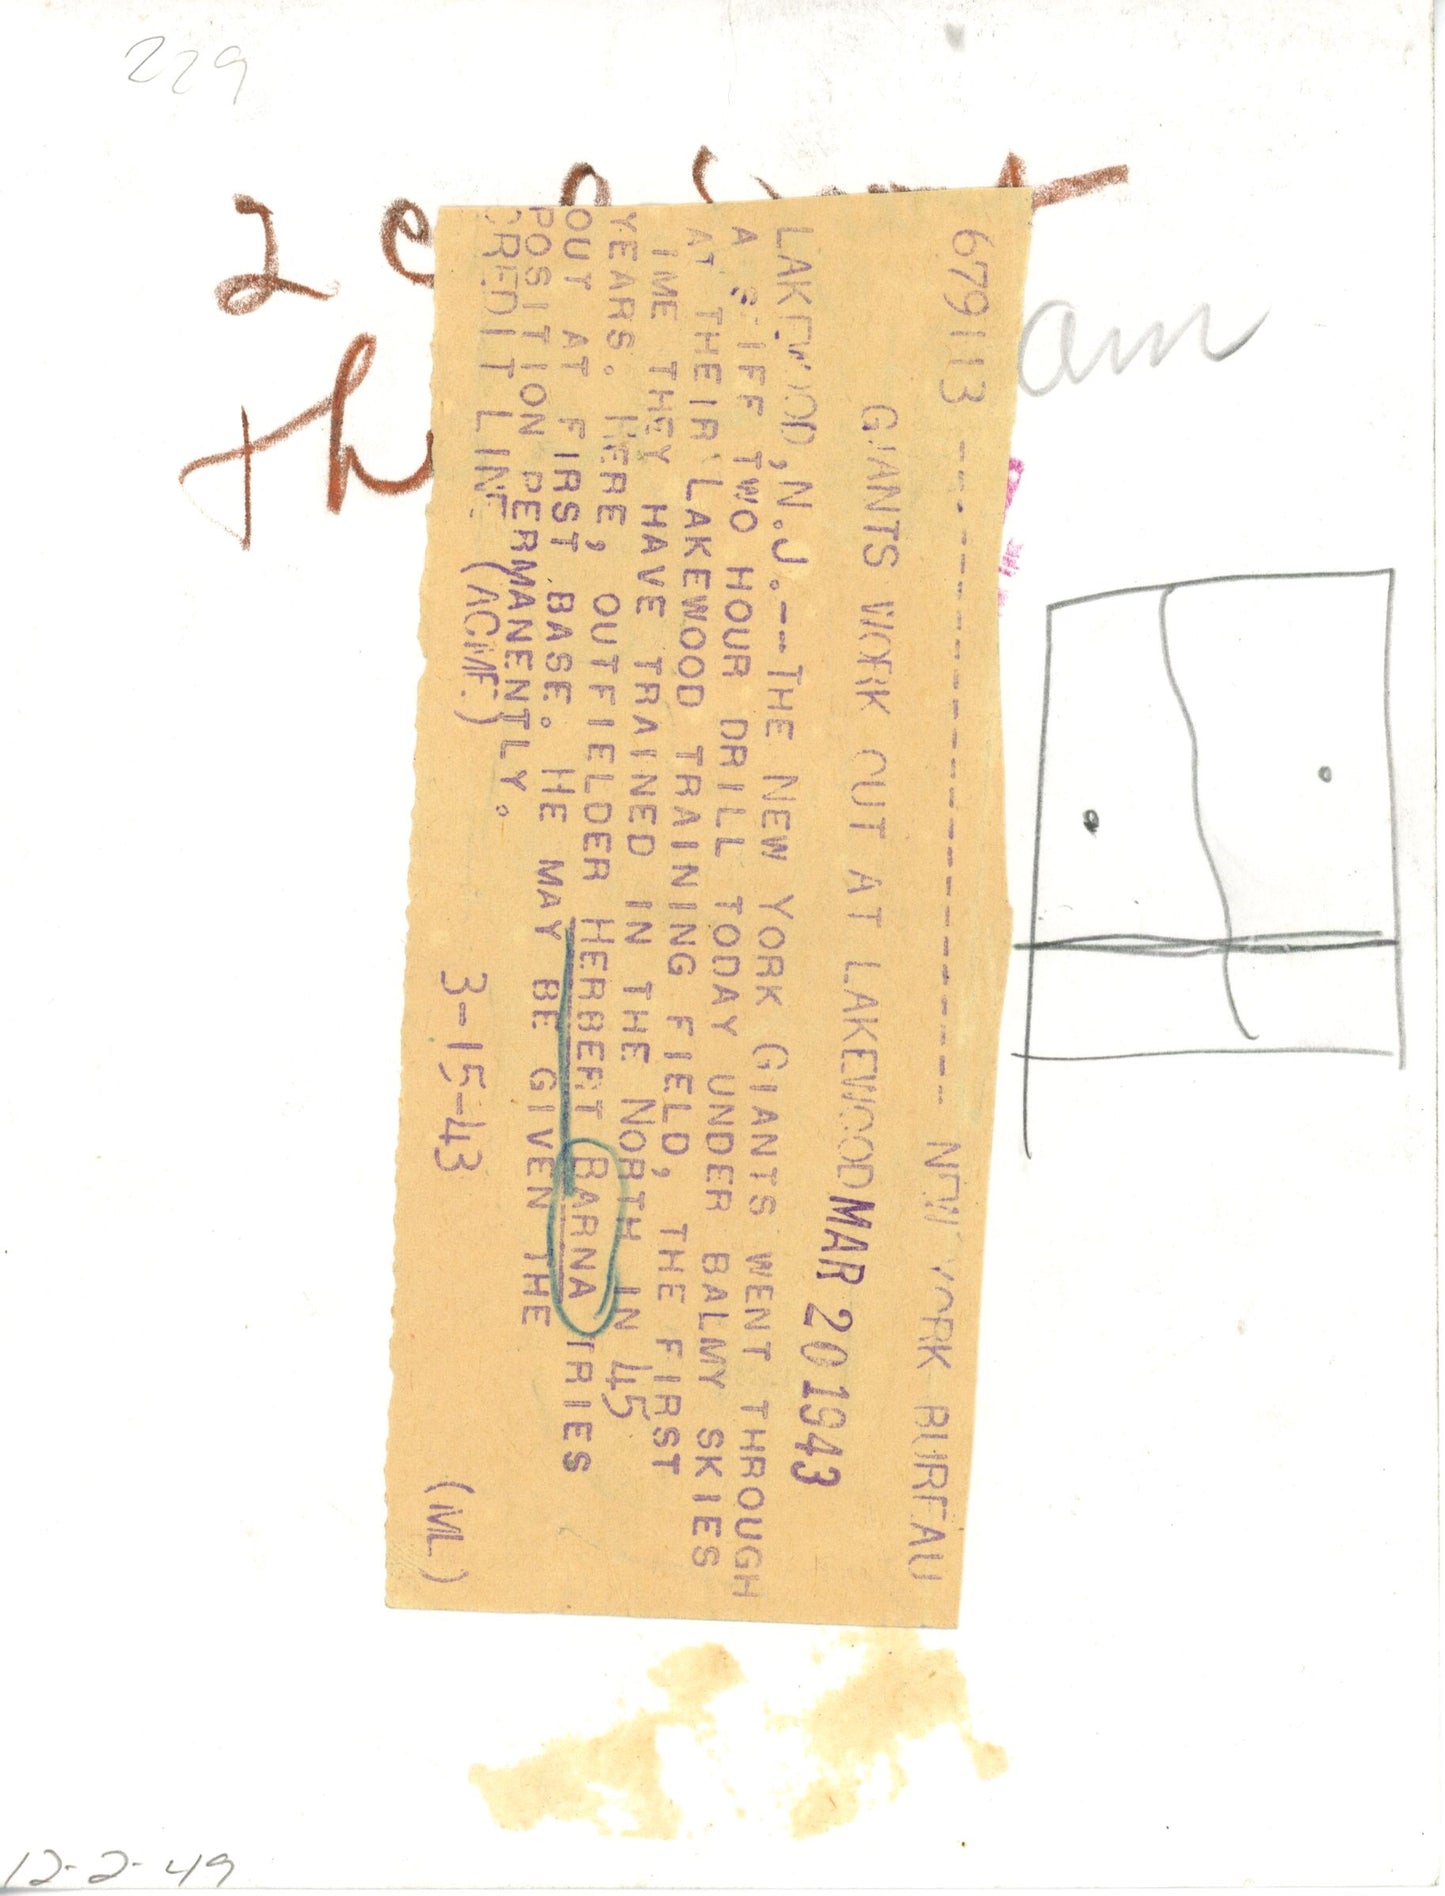 229
Th
am
679113 ---------------- NEW YORK BUREAU
GIANTS WORK OUT AT LAKEWOOD
MAR 20 1943
LAKEWOOD, N.J.--THE NEW YORK GIANTS WENT THROUGH
A STIFF TWO HOUR DRILL TODAY UNDER BALMY SKIES
AT THEIR LAKEWOOD TRAINING FIELD, THE FIRST
TIME THEY HAVE TRAINED IN THE NORTH IN 45
YEARS. HERE, OUTFIELDER HERBERT BARNA TRIES
OUT AT FIRST BASE. HE MAY BE GIVEN THE
POSITION PERMANENTLY.
CREDIT LINE (ACME) 3-15-43 (ML)
12-2-49